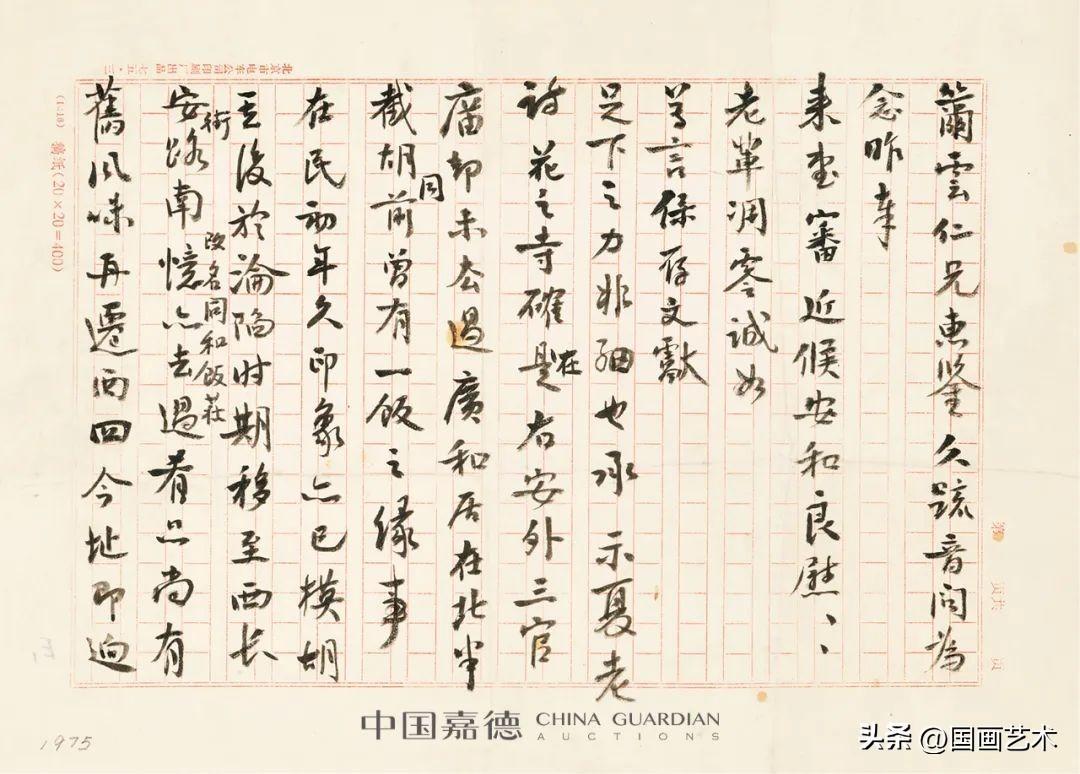 北京市电车公司印刷厂出品 七五·三
(1418) 稿纸(20×20=400)
第 页共 页
籣雲仁兄惠鑒久疏音問為
念昨奉
来書審近候安和良慰、、
老輩凋零誠如
尊言保存文獻
足下之力非細也承示夏老
詩花之寺確是在右安外三官
廟却未去過廣和居在北半
截胡同前曾有一飯之緣事
在民初年久印象亦已模胡
至後於淪陷时期移至西长
安街路南改名同和飯莊憶亦去過肴品尚有
舊風味再遷西四今址即迥
1975
中国嘉德 CHINA GUARDIAN
AUCTIONS
头条 @国画艺术